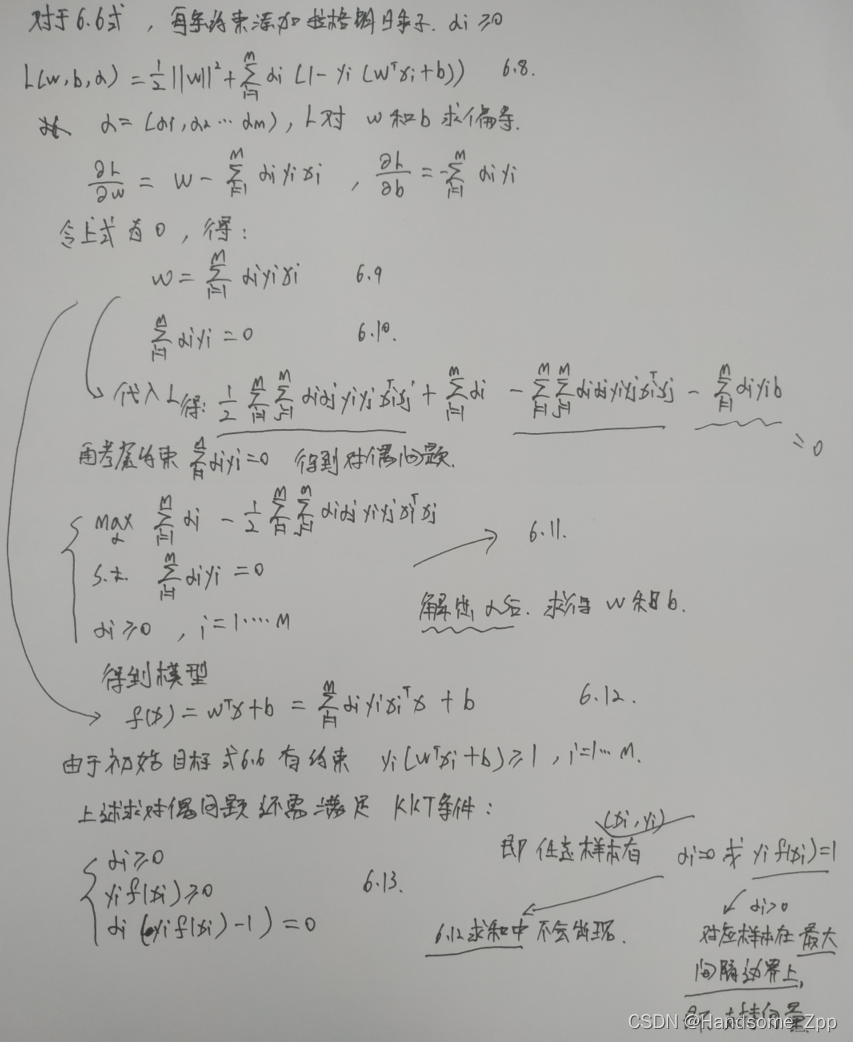 对于6.6式，每条约束添加拉格朗日乘子. αi ≥0
L(w,b,α) = 1/2 ||w||² + Σ_{i=1}^{M} αi (1- yi (wᵀxi+b))    6.8.
α= (α1,α2 ··· αm), L对 w和b 求偏导.
∂L/∂w = w - Σ_{i=1}^{M} αi yi xi , ∂L/∂b = -Σ_{i=1}^{M} αi yi
令上式为0, 得:
w = Σ_{i=1}^{M} αi yi xi    6.9
Σ_{i=1}^{M} αi yi = 0    6.10.
代入L得: 1/2 Σ_{i=1}^{M} Σ_{j=1}^{M} αi αj yi yj xiᵀxj + Σ_{i=1}^{M} αi - Σ_{i=1}^{M} Σ_{j=1}^{M} αi αj yi yj xiᵀxj - Σ_{i=1}^{M} αi yi b
=0
再考虑约束 Σ_{i=1}^{M} αi yi=0 得到对偶问题.
max_α Σ_{i=1}^{M} αi - 1/2 Σ_{i=1}^{M} Σ_{j=1}^{M} αi αj yi yj xiᵀ xj
6.11.
s.t. Σ_{i=1}^{M} αi yi = 0
解出α后. 求得 w 和 b.
αi ≥0 , i=1····M
得到模型
f(x) = wᵀx+b = Σ_{i=1}^{M} αi yi xiᵀ x + b    6.12.
由于初始目标式6.6 有约束 yi(wᵀxi+b) ≥1 , i=1··· M.
上述求对偶问题还需满足 KKT条件:
(xi, yi)
即 任意样本有 αi=0 或 yi f(xi)=1
αi ≥0
yi f(xi) ≥0
αi (yi f(xi) -1) = 0
6.13.
6.12求和中不会出现.
αi>0
对应样本在最大
间隔边界上,
即 支持向量
CSDN @Handsome_Zpp